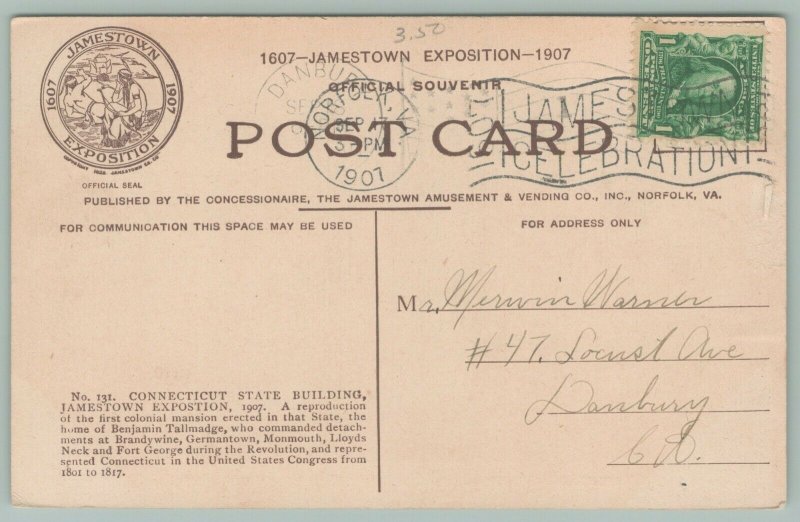 3.50
1607—JAMESTOWN EXPOSITION—1907
OFFICIAL SOUVENIR
POST CARD
JAMESTOWN
1607 1907
EXPOSITION
OFFICIAL SEAL
DANBURY
NORFOLK, VA.
SEP 17
3-PM
1907
JAMES
CELEBRATION
1
PUBLISHED BY THE CONCESSIONAIRE, THE JAMESTOWN AMUSEMENT & VENDING CO., INC., NORFOLK, VA.
FOR COMMUNICATION THIS SPACE MAY BE USED
FOR ADDRESS ONLY
Mr. Merwin Warner
#47. Locust Ave
Danbury
Ct.
No. 131. CONNECTICUT STATE BUILDING,
JAMESTOWN EXPOSTION, 1907. A reproduction
of the first colonial mansion erected in that State, the
home of Benjamin Tallmadge, who commanded detach-
ments at Brandywine, Germantown, Monmouth, Lloyds
Neck and Fort George during the Revolution, and repre-
sented Connecticut in the United States Congress from
1801 to 1817.